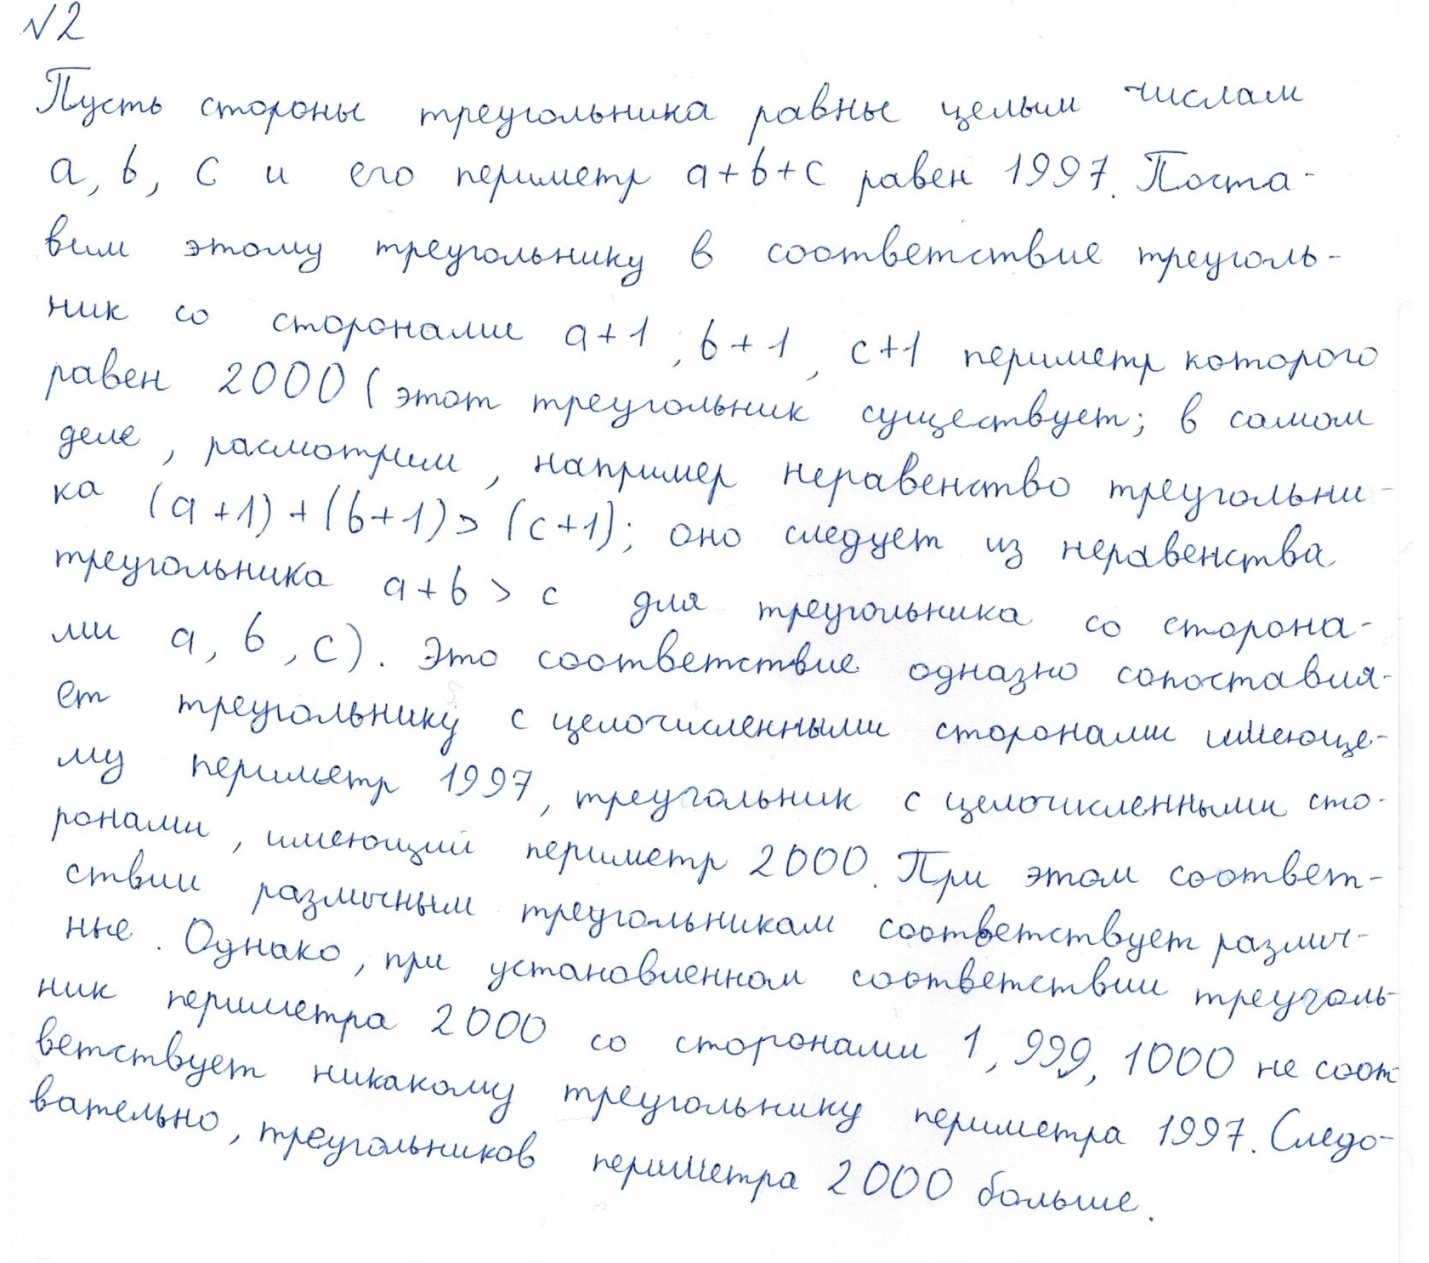 √2
Пусть стороны треугольника равны целым числам
a, b, c и его периметр a+b+c равен 1997. Поста-
вим этому треугольнику в соответствие треуголь-
ник со сторонами a+1, b+1, c+1 периметр которого
равен 2000 (этот треугольник существует; в самом
деле, расмотрим, например неравенство треугольни-
ка (a+1)+(b+1)>(c+1); оно следует из неравенства
треугольника a+b > c для треугольника со сторона-
ми a, b, c). Это соответствие одназно сопоставля-
ет треугольнику с целочисленными сторонами имеюще-
му периметр 1997, треугольник с целочисленными сто-
ронами, имеющий периметр 2000. При этом соответ-
ствии различным треугольникам соответствует различ-
ные. Однако, при установленном соответствии треуголь-
ник периметра 2000 со сторонами 1, 999, 1000 не соот
ветствует никакому треугольнику периметра 1997. Следо-
вательно, треугольников периметра 2000 больше.